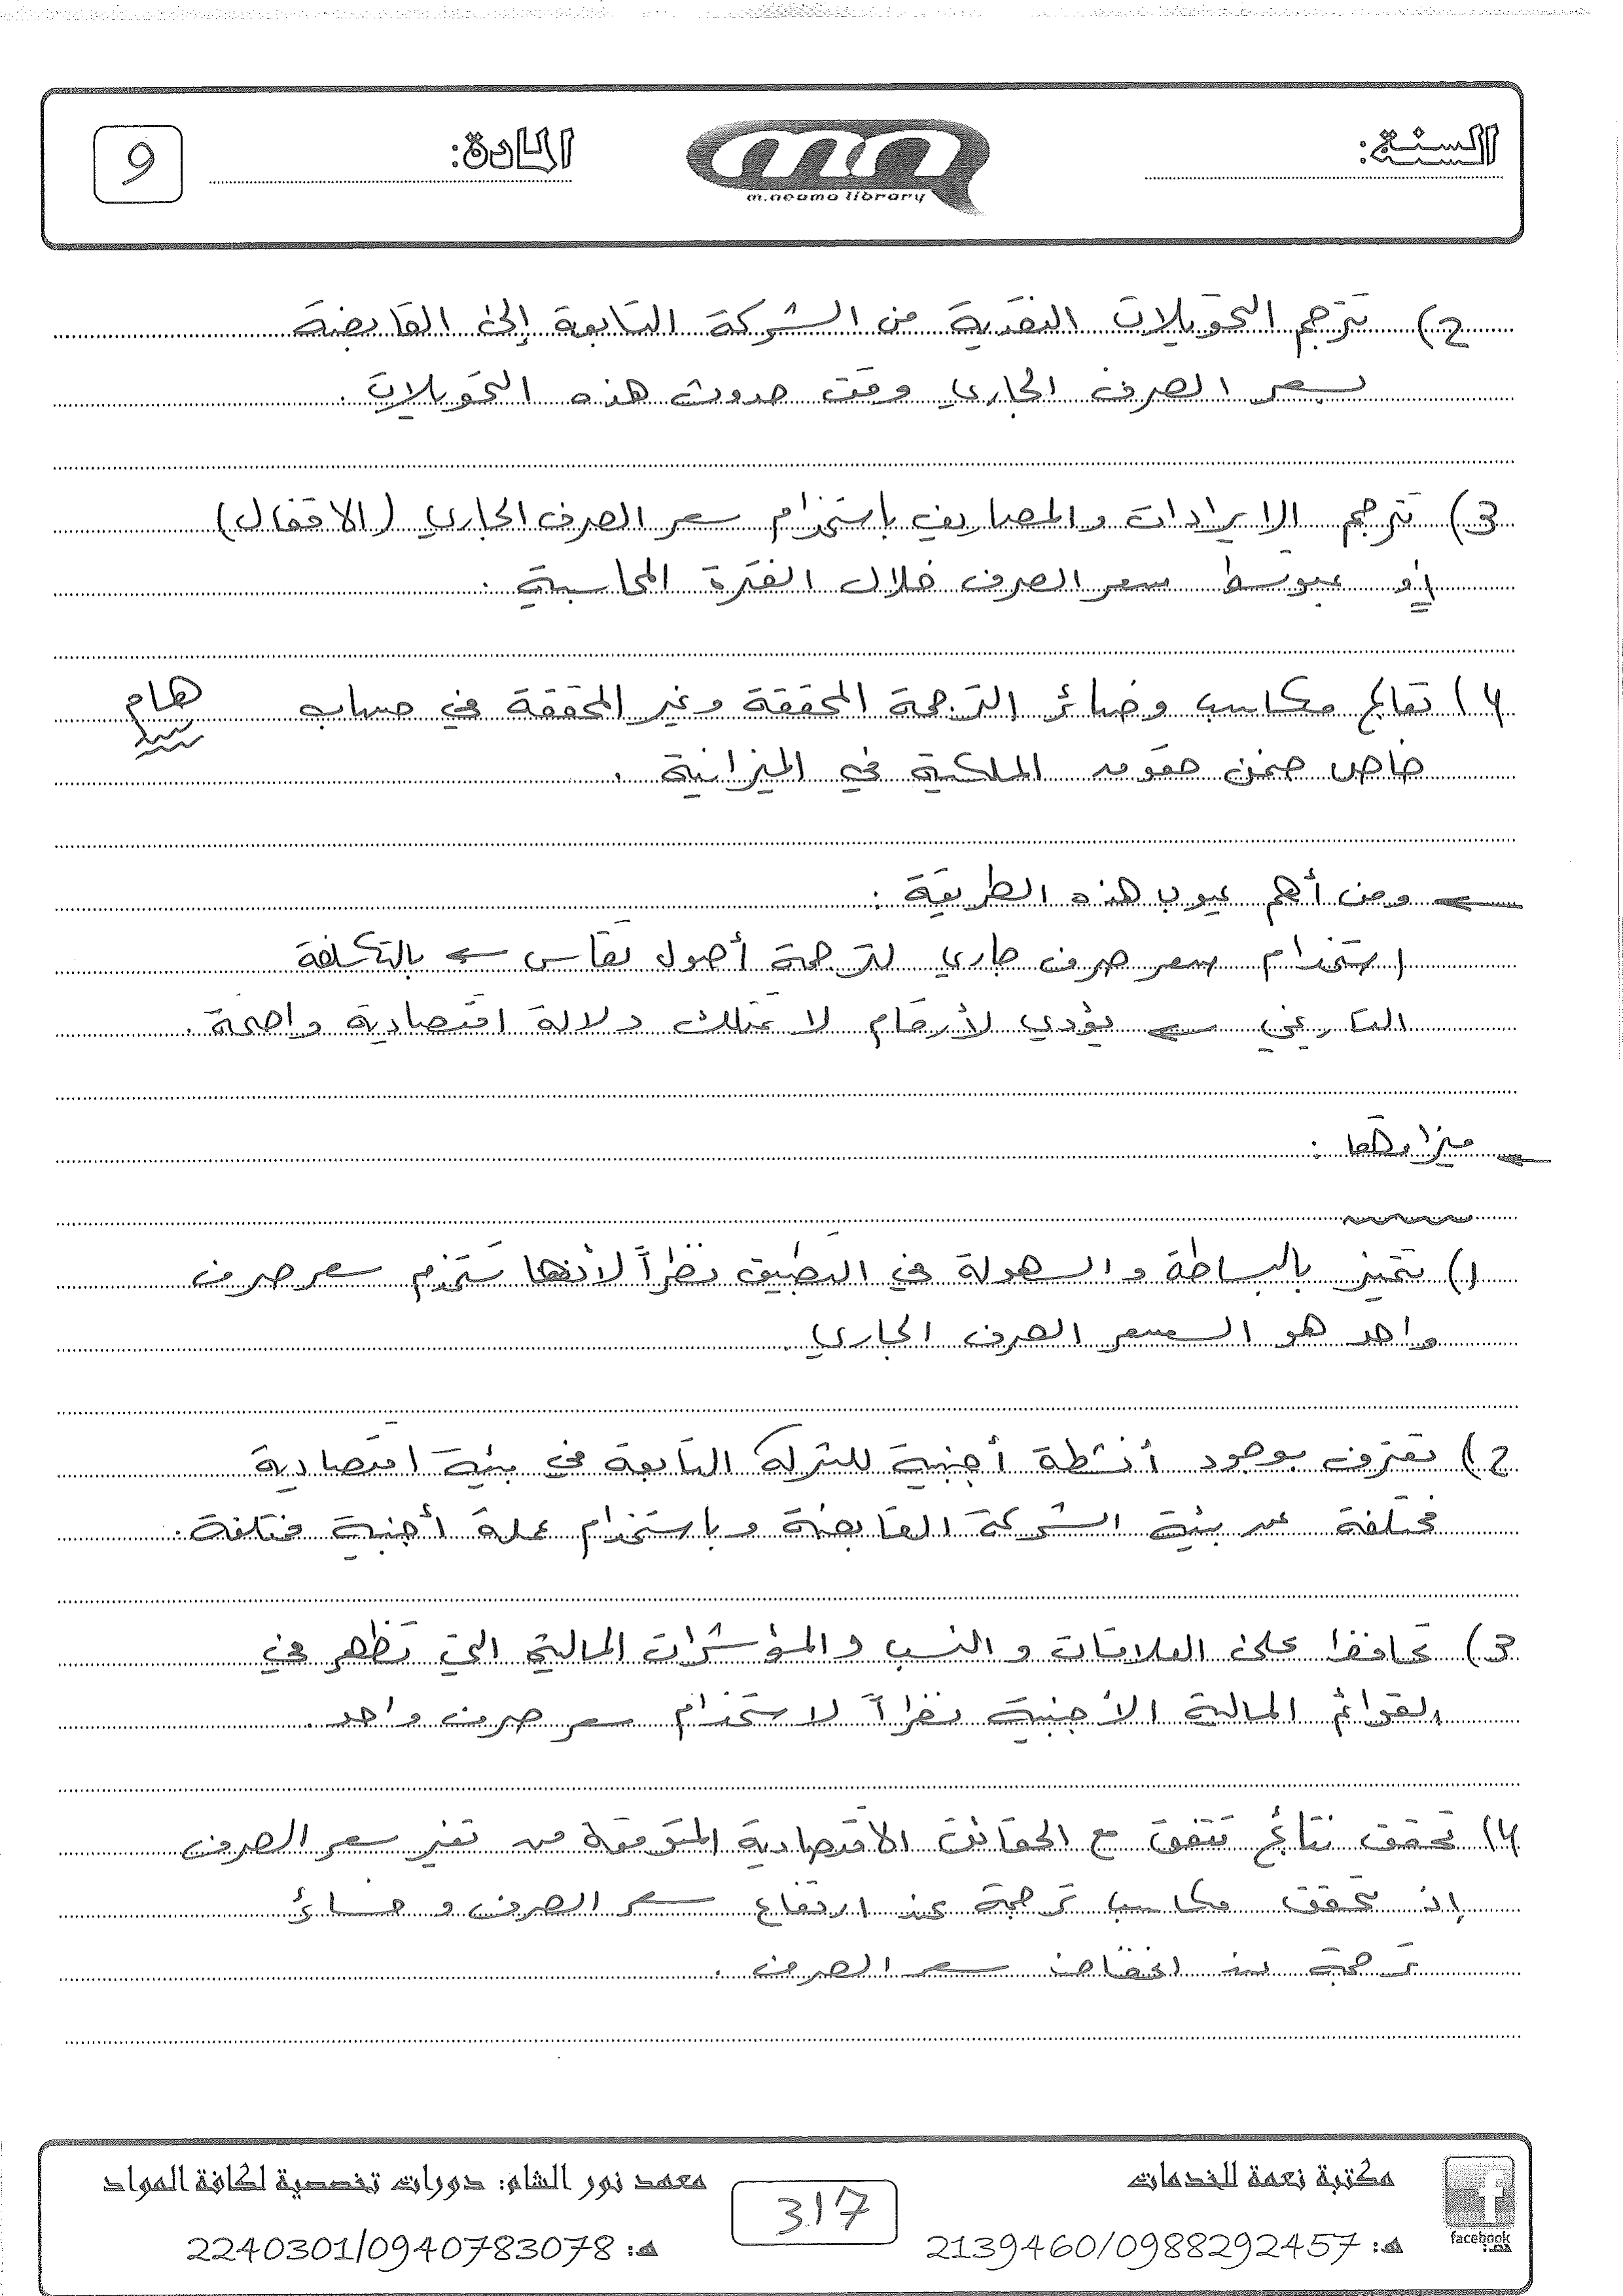 السنة:
المادة:
9
m.neama library
2) تترجم التحويلات النقدية من الشركة التابعة إلى القابضة
بسعر الصرف الجاري وقت حدوث هذه التحويلات.
3) تترجم الايرادات والمصاريف باستخدام سعر الصرف الجاري (الاقفال)
أو بمتوسط سعر الصرف خلال الفترة المحاسبية.
4) تعالج مكاسب وخسائر الترجمة المحققة وغير المحققة في حساب هام
خاص ضمن حقوق الملكية في الميزانية.
← ومن أهم عيوب هذه الطريقة:
استخدام سعر صرف جاري لترجمة أصول تقاس ← بالتكلفة
التاريخي ← يؤدي لأرقام لا تمتلك دلالة اقتصادية واضحة.
← ميزاتها:
1) تتميز بالبساطة والسهولة في التطبيق نظراً لأنها تستخدم سعر صرف
واحد هو السعر الصرف الجاري.
2) تعترف بوجود أنشطة أجنبية للشركة التابعة في بيئة اقتصادية
مختلفة عن بيئة الشركة القابضة وباستخدام عملة أجنبية مختلفة.
3) تحافظ على العلاقات والنسب والمؤشرات المالية التي تظهر في
القوائم المالية الأجنبية نظراً لاستخدام سعر صرف واحد.
4) تحقق نتائج تتفق مع الحقائق الاقتصادية المتوقعة من تغير سعر الصرف
إذ تحقق مكاسب ترجمة عند ارتفاع سعر الصرف و خسائر
ترجمة عند انخفاض سعر الصرف.
facebook
مكتبة نعمة للخدمات
هـ: 2139460/0988292457
317
معهد نور الشام: دورات تخصصية لكافة المواد
هـ: 2240301/0940783078